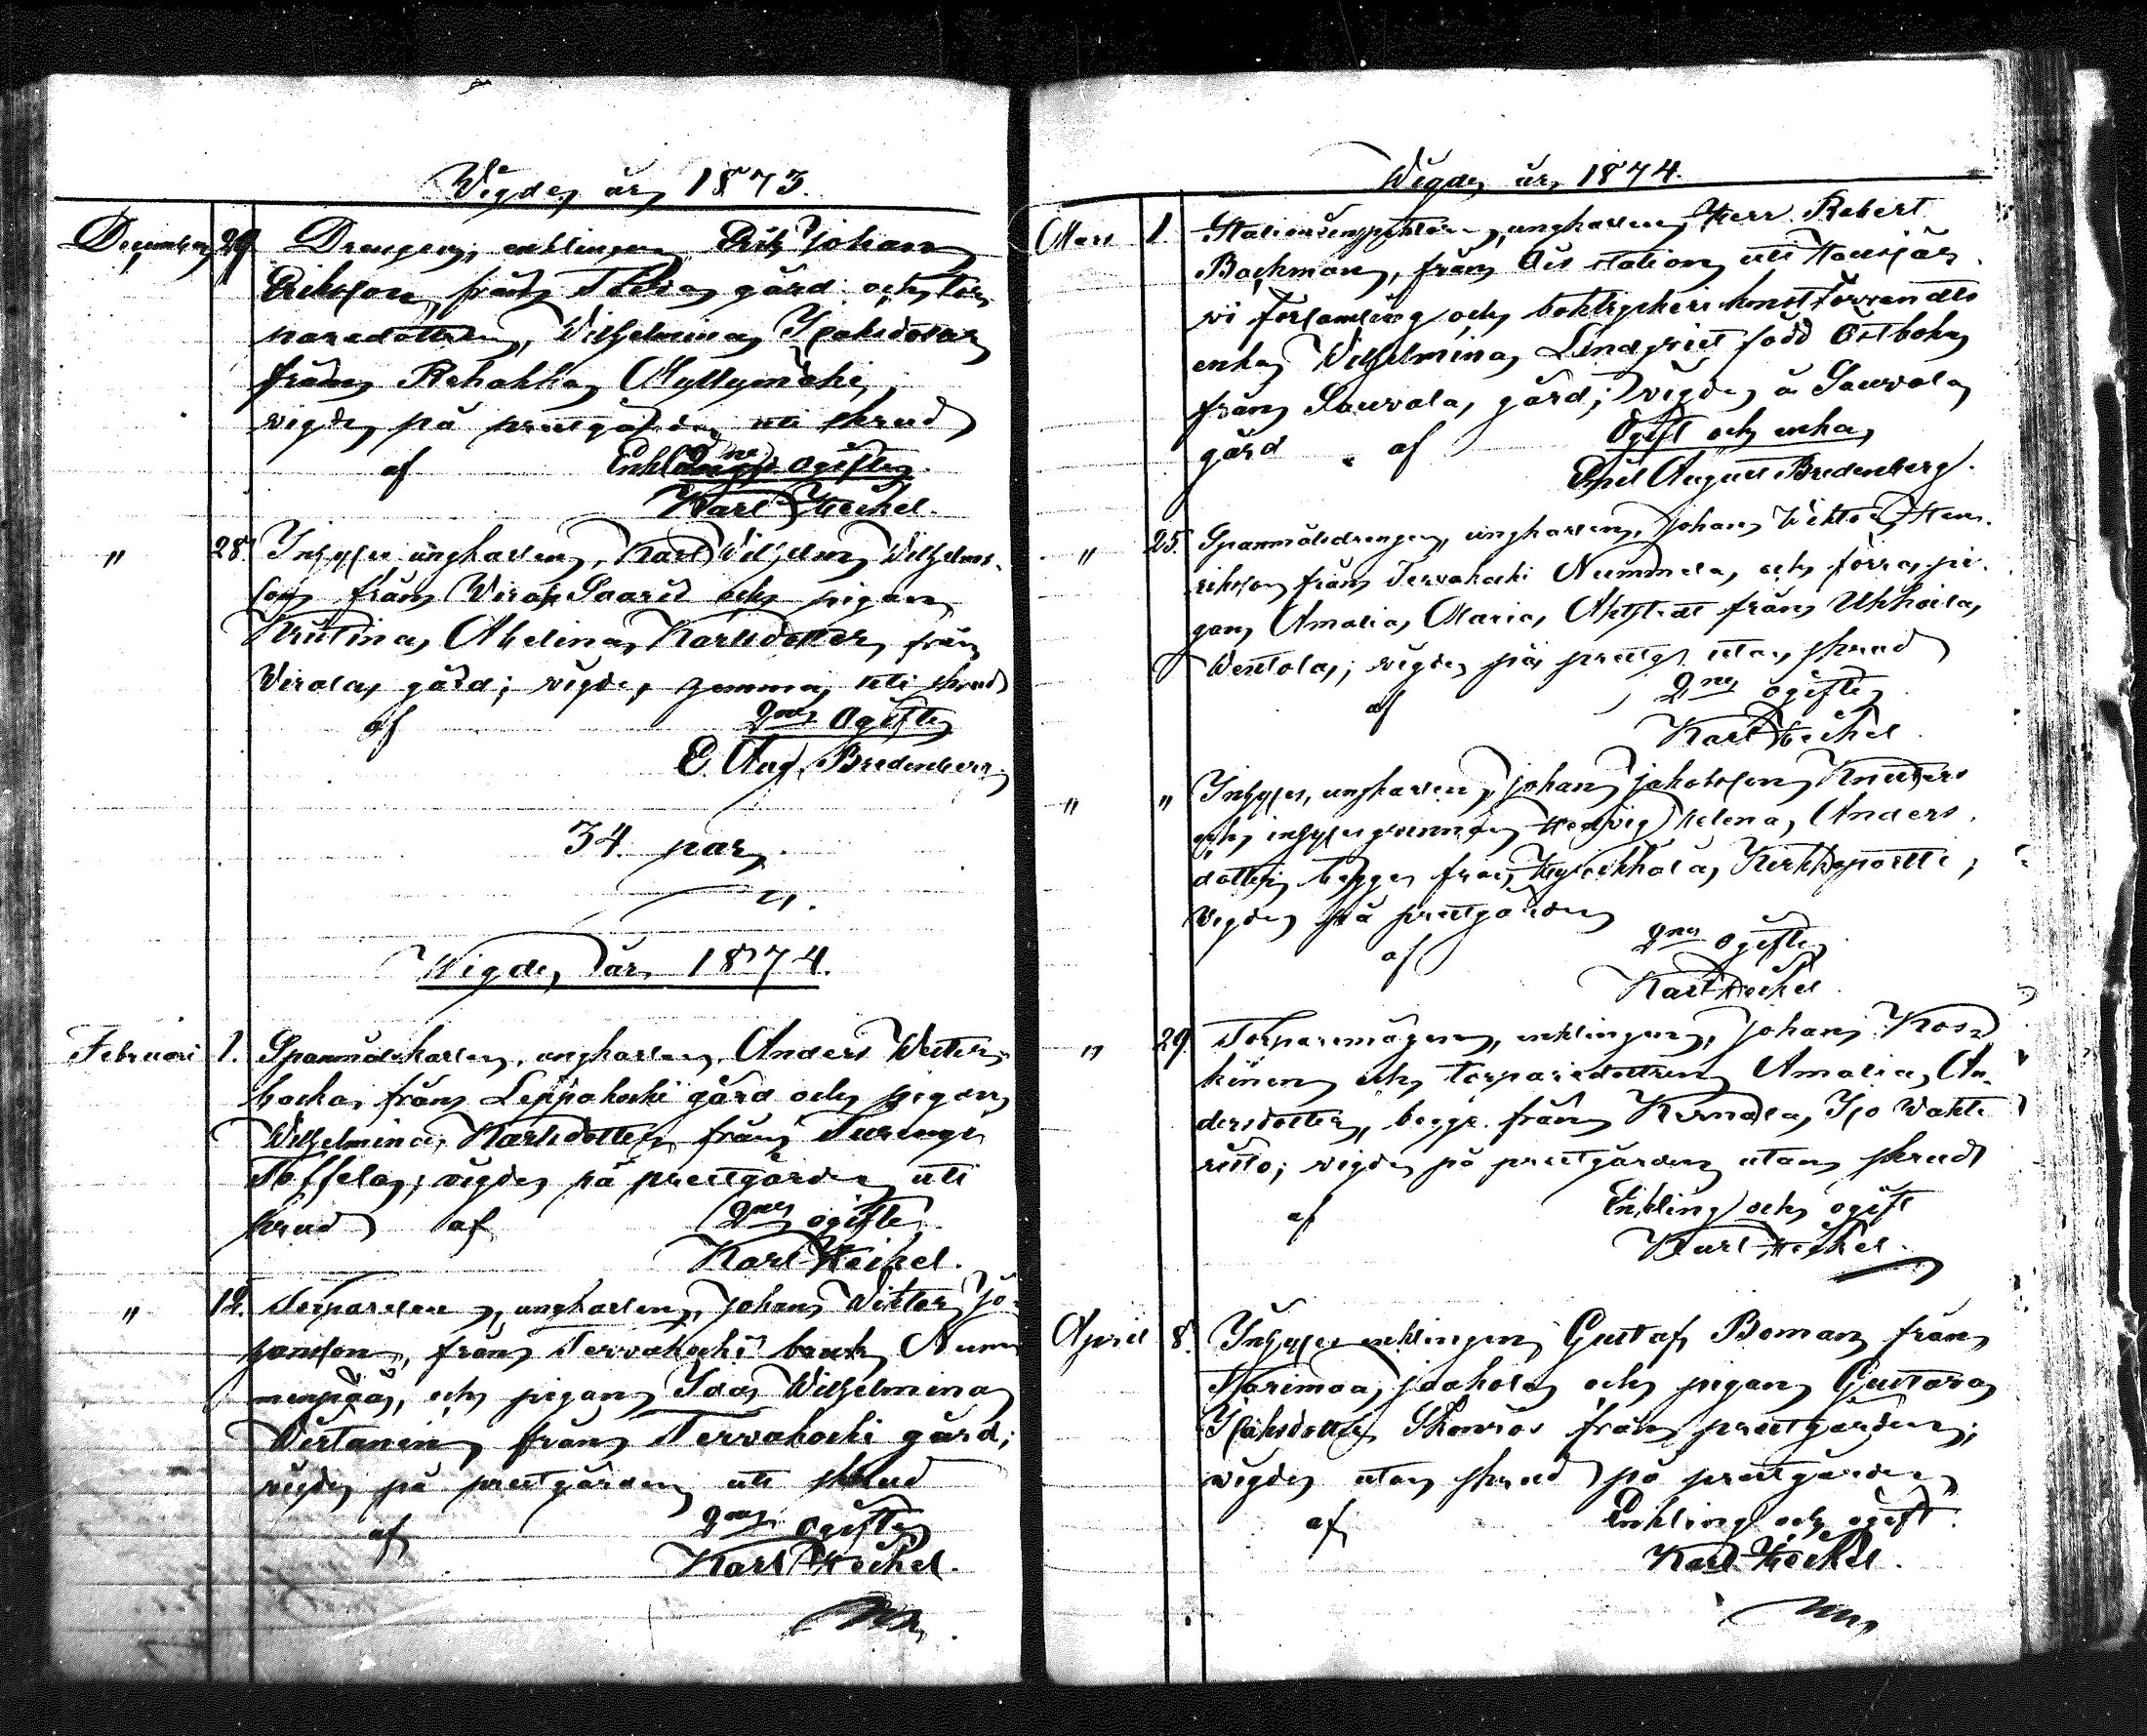 Wigde år 1873.
December 29. Drengen, enklingen Erik Johan
Eriksson, från gård och tor-
paredottren, Wilhelmina Isaksdotter
från Rehakka Myllymäki,
vigde på prestgården uti skrud
af Enkling ogift
Karl Heikel.
" 28. Inhyses ungkarlen, Karl Wilhelm Wilhelms-
son från Wirala Saaris och pigan
Kristina Abelina Karlsdotter, från
Wirala gård; vigde hemma uti skrud
af 2ne Ogifte
E. Aug. Bredenberg
34. par.
Wigde år 1874.
Februari 1. Spanmålskarlen, ungkarlen, Anders Wester-
backa, från Leppäkoski gård och pigan
Wilhelmina Karlsdotter från Turenge
Toffela; vigde på prestgården uti
skrud af 2ne ogifte
Karl Heikel.
" 12. Torparesonen, ungkarlen, Johan Wiktor Jo-
hansson, från Tervakoski bruk Num-
menpää, och pigan Ida Wilhelmina
Wirtanen från Tervakoski gård;
vigde på prestgården uti skrud
af 2ne Ogifte
Karl Heikel.
Wigde år 1874.
Mars 1. Stationsinspektoren, ungkarlen, Herr Robert
Backman, från Ois station uti Hausjär-
vi Församling och boktryckerikonstförvandts
enkan Wilhelmina Lindqvist född Östbohn
från Sauvala gård; vigde å Sauvala
gård af Ogift och enka
Emil August Bredenberg.
" 25. Spanmålsdrengen, ungkarlen, Johan Wiktor Hen-
riksson från Tervakoski Nummela, och förra pi-
gan Amalia Maria Ahlstedt från Uhkoila
Wentola; vigde på prestg. utan skrud
af 2ne ogifte
Karl Heikel
" " Inhyses, ungkarlen, Johan Jakobsson Knuters
och inhysesqvinnan Hedvig Helena Anders-
dotter, begge från Kirkkoportti;
vigde på prestgården
af 2ne ogifte
Karl Heikel
" 29. Torparemågen, enklingen, Johan Kos-
kinen och torparedottren Amalia An-
dersdotter, begge från Kernala, Iso Wahte-
risto; vigde på prestgården utan skrud
af Enkling och ogift
Karl Heikel.
April 8. Inhyses enklingen Gustaf Boman från
Harimaa Jaakola och pigan Gustava
Isaksdotter från prestgården;
vigde utan skrud på prestgården
af Enkling och ogift.
Karl Heikel.